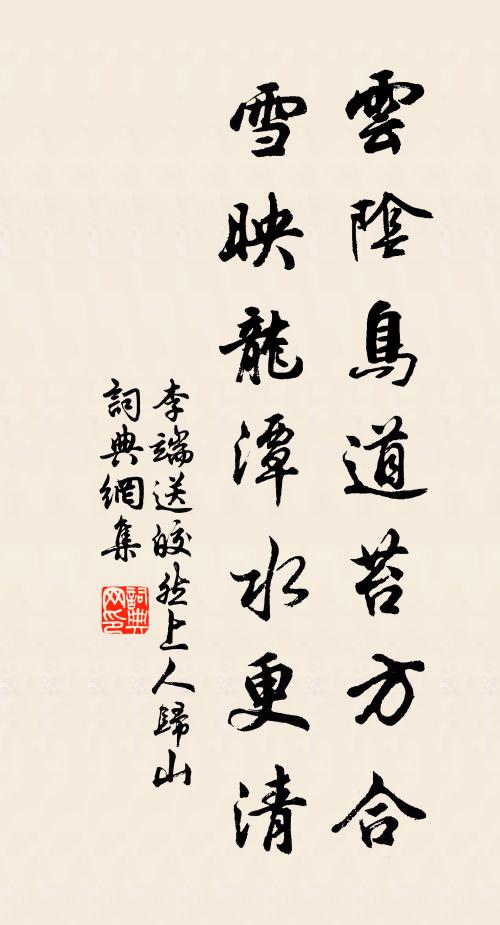 雲陰鳥道苔方合
雪映龍潭水更清
李端送皎然上人歸山
詞典網集
詞典网印